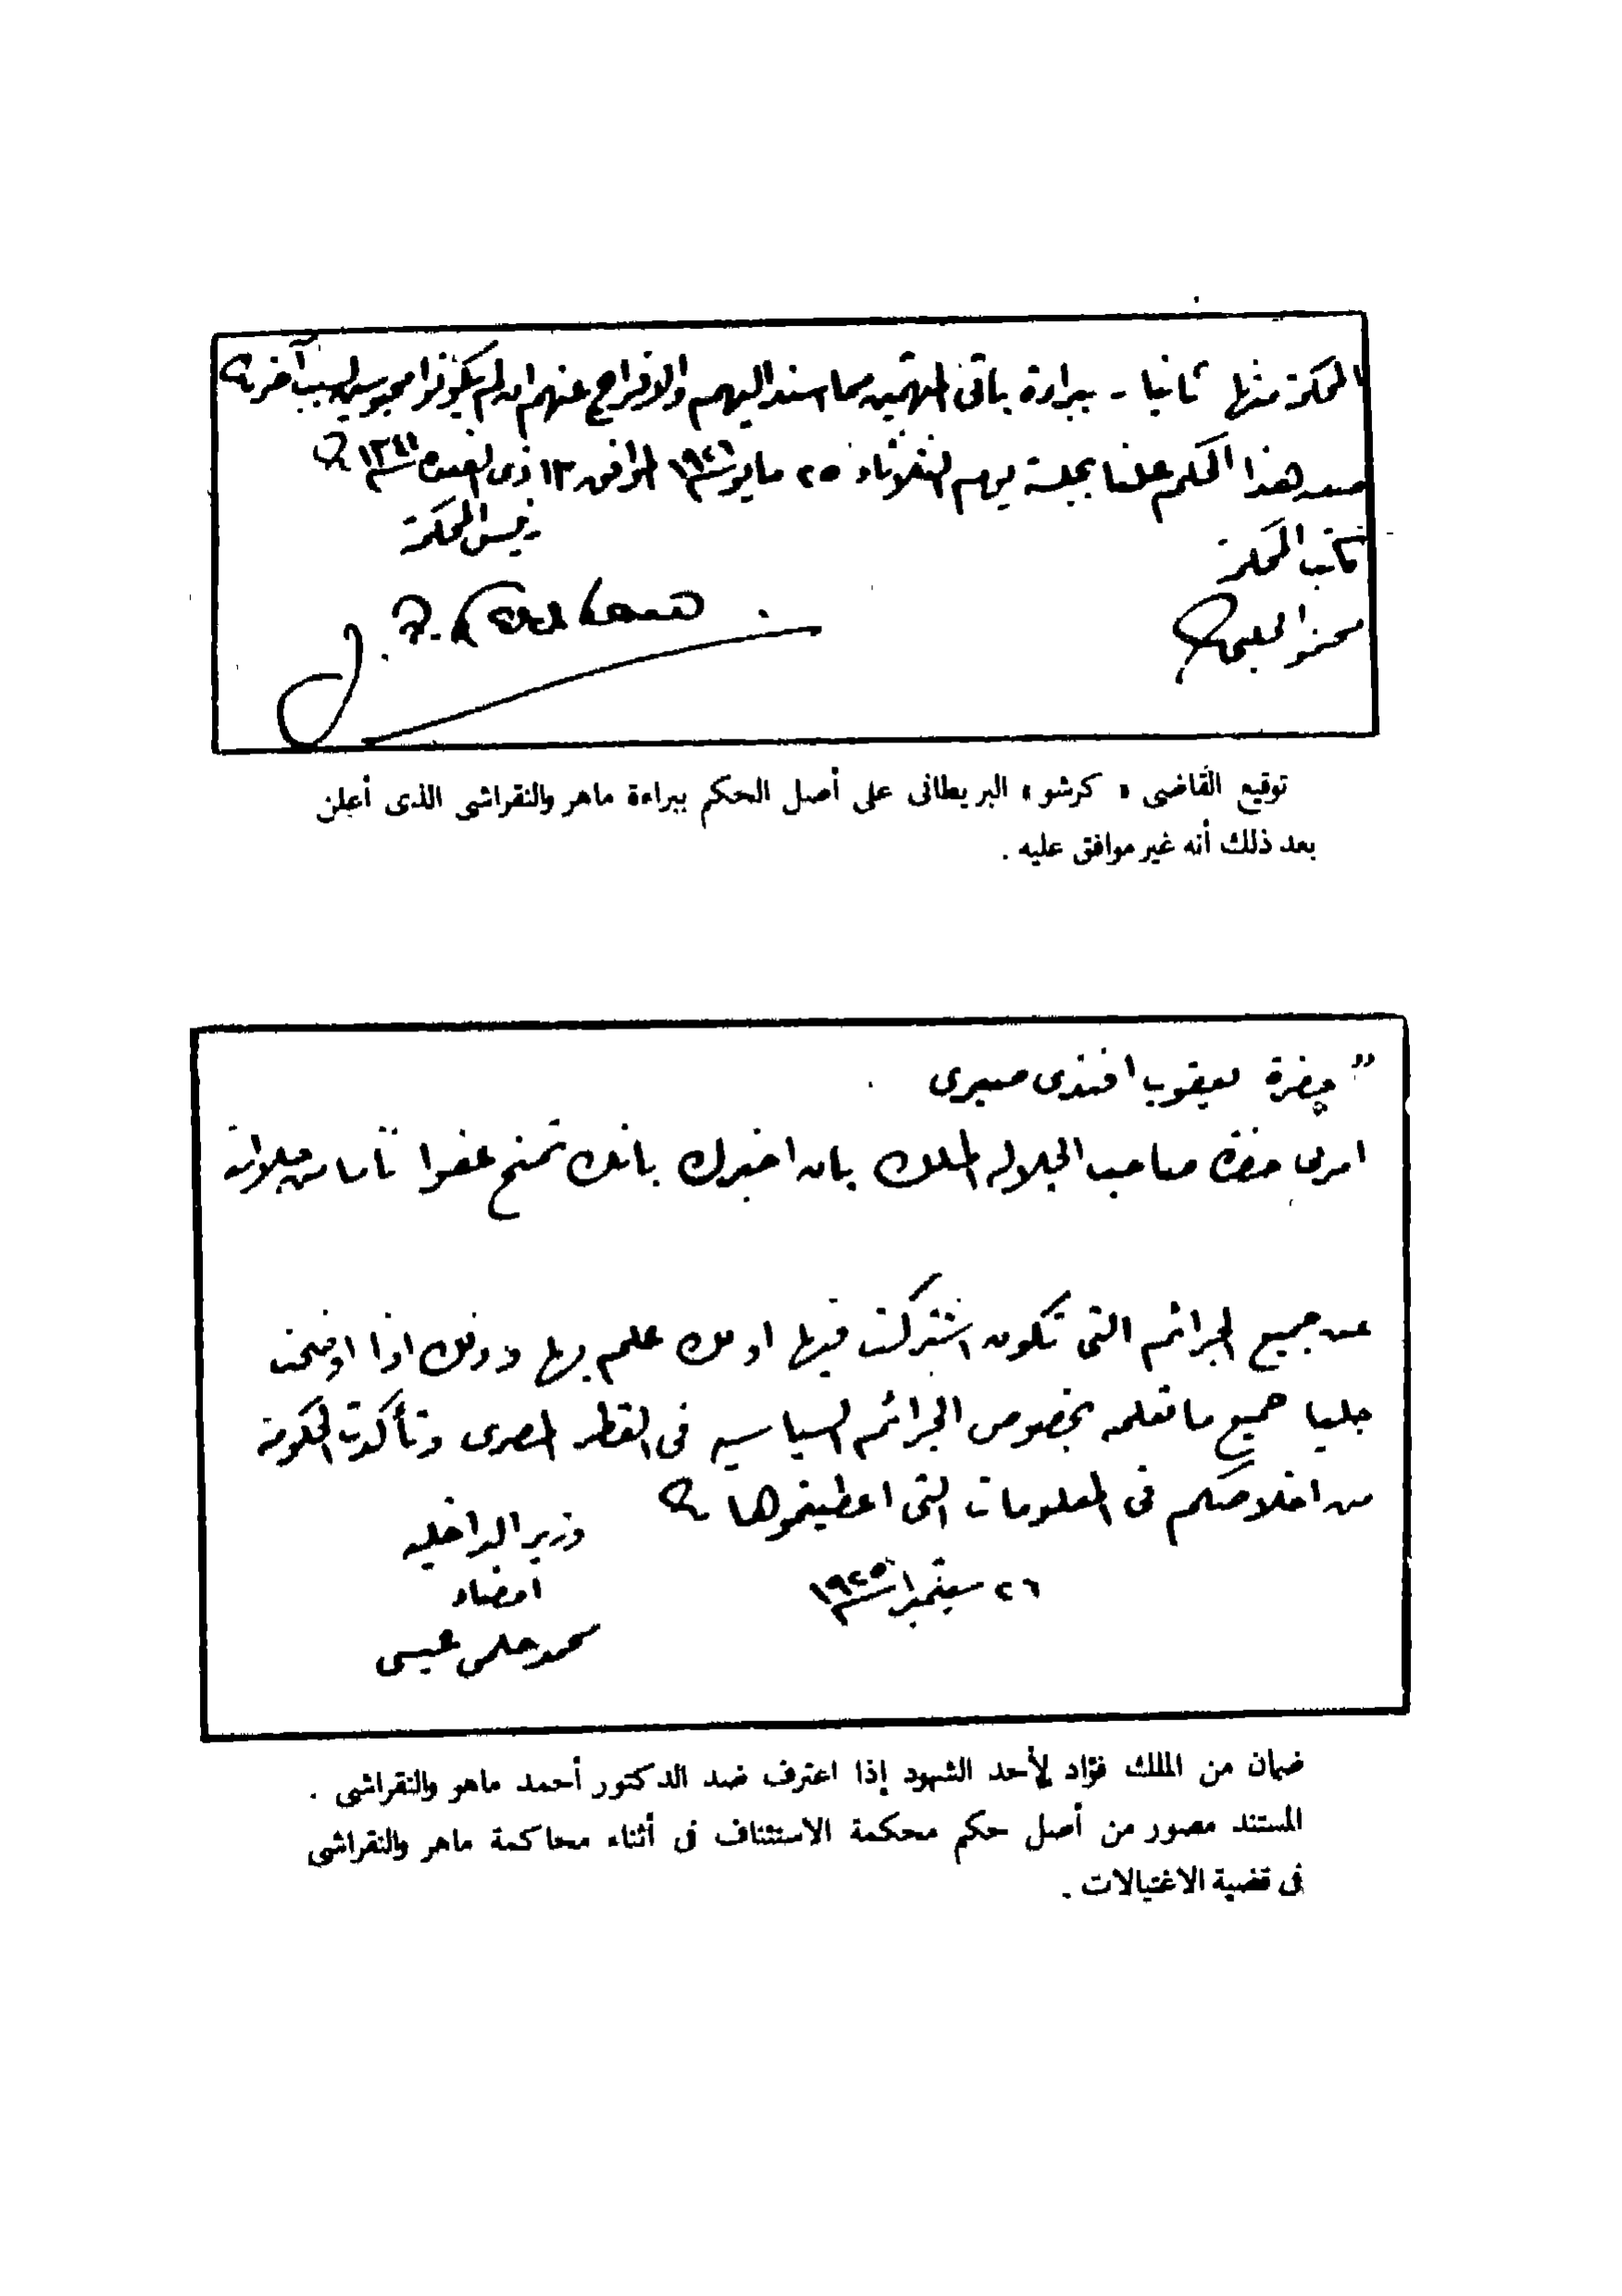 المحكمة منها ثانيا - ببراءة باقى المتهمين مما اسند اليهم والافراج عنهم ان لم يكونوا محبوسين لسبب آخر
صدر هذا الحكم علنا بجلسة يوم الثلاثاء ٢٥ مايو سنة ١٩٢٦ الموافق ١٣ ذى القعدة سنة
رئيس المحكمة
كاتب المحكمة
توقيع القاضى « كرشو » البريطانى على أصل الحكم ببراءة ماهر والنقراشى الذى أعلن
بعد ذلك أنه غير موافق عليه .
" حضرة يعقوب افندى صبرى
امرنى حضرة صاحب الجلالة الملك بان اخبرك بانك تمنح عفوا تاما من جلالته
عن جميع الجرائم التى تكون اشتركت فيها او لك علم بها وذلك اذا اوضحت
جليا جميع ما تعلمه بخصوص الجرائم السياسيه فى القطر المصرى وتأكدت الحكومة
من اخلاصكم فى المعلومات التى اعطيتموها
وزير الداخليه
امضاء
٢٦ سبتمبر سنة ١٩٢٥
محمد حلمى عيسى
ضمان من الملك فؤاد لأحد الشهود إذا اعترف ضد الدكتور أحمد ماهر والنقراشى .
المستند مصور من أصل حكم محكمة الاستئناف فى أثناء محاكمة ماهر والنقراشى
فى قضية الاغتيالات .